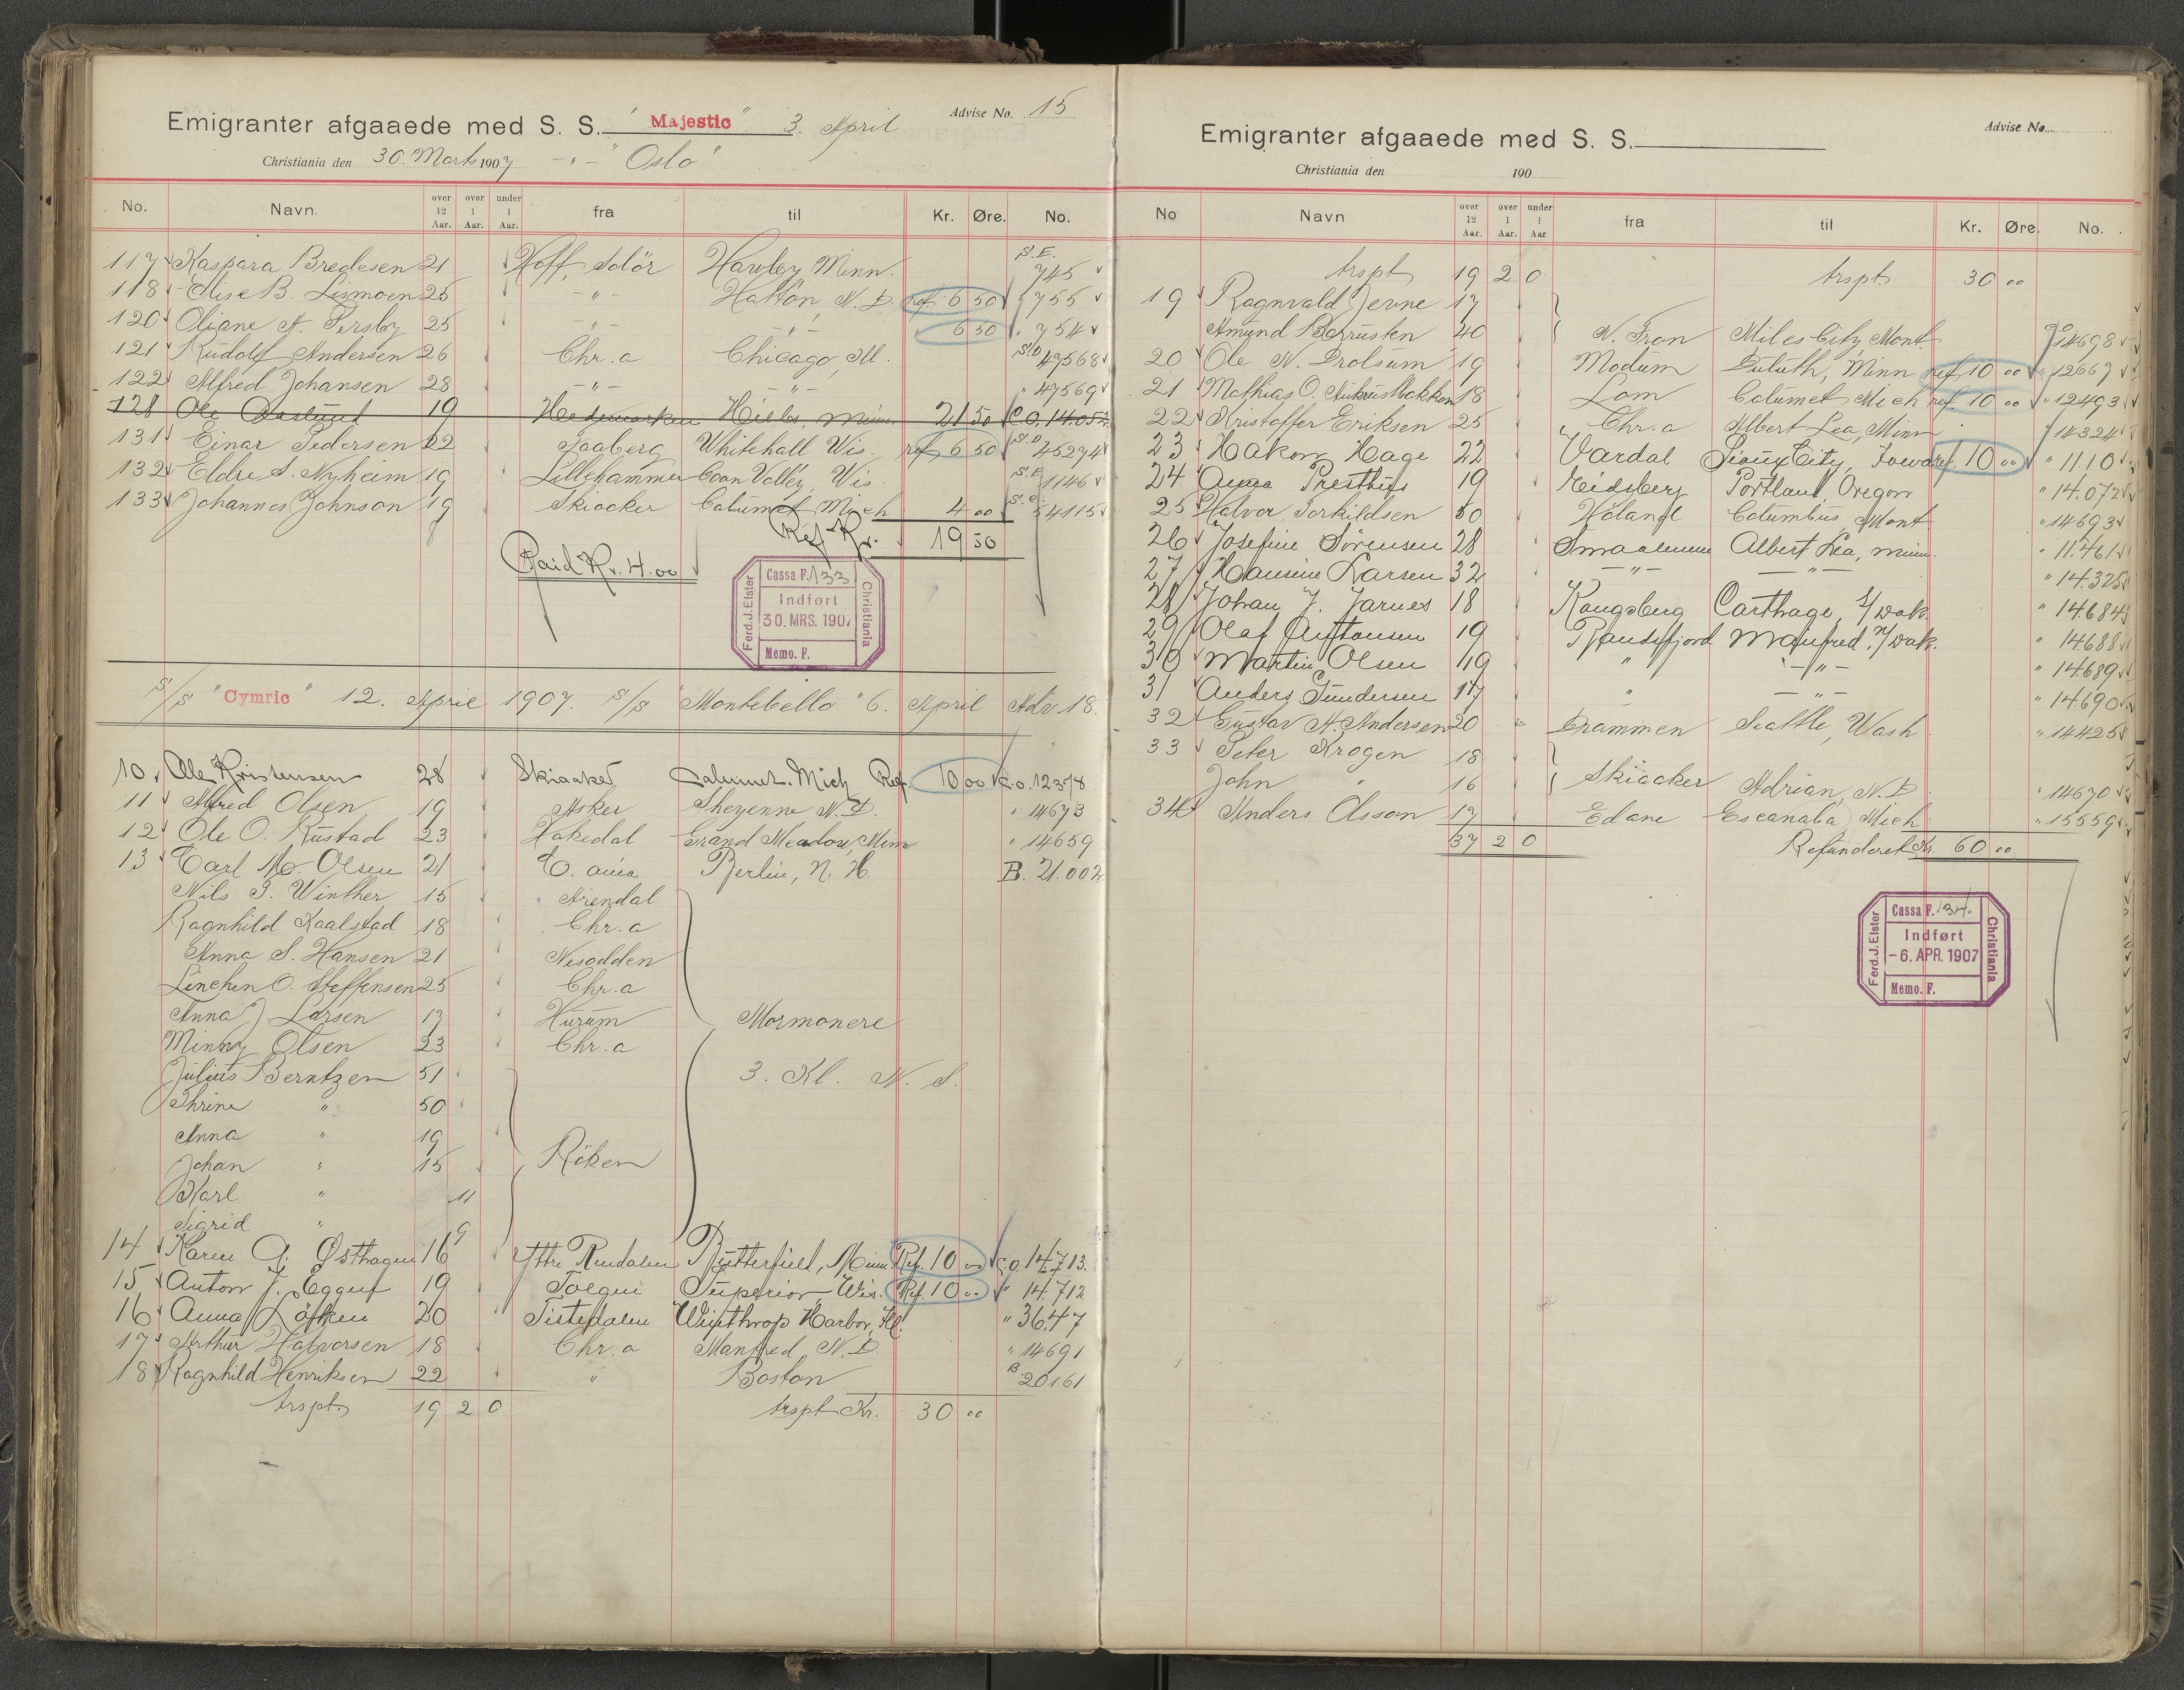 Emigranter afgaaede med S. S. "Majestic" 3. April Advise No. 15
Christiania den 30. Marts 1907 - " - "Oslo"
No. Navn. over 12 Aar. over 1 Aar. under 1 Aar. fra til Kr. Øre. No.
117 Kaspara Bredesen 21 Hoff, Solör Hawley Minn. S.E. 745
118 Elise B. Lismoen 25 - " - Hatton, N. D. ref. 6 50 " 755
120 Oliane A. Persby 25 - " - - " - " 6 50 " 754
121 Rudolf Andersen 26 Chr.a Chicago, Ill. S.D. 47568
122 Alfred Johansen 28 - " - - " - " 47569
128 Ole 19 Hedemarken Minn. 21 50 C.O. 14.052
131 Einar Pedersen 22 Faaberg Whitehall Wis. ref. 6 50 S.D. 45274
132 Eldre S. Nyheim 19 Lillehammer Coon Valley, Wis. S.E. 1146
133 Johannes Johnson 19 Skiaaker Calumet Mich 4 00 S.C. 54115
8 Ref Kr. 19 50
Paid Kr. 4.00
Cassa F. 133
Indført
30. MRS. 1907
Memo. F.
Ferd. J. Elster
Christiania
S/S "Cymric" 12. April 1907. S/S "Montebello" 6. April Adv 18.
10 Ole Kristensen 28 Skiaaker Calumet. Mich Ref. 10 00 C.O. 12378
11 Alfred Olsen 19 Asker Sheyenne N. D. " 14673
12 Ole O. Rustad 23 Hakedal Grand Meadow, Minn " 14659
13 Carl M. Olsen 21 C. ania Berlin, N. H. B. 21.002
Nils J. Winther 15 Arendal
Ragnhild Kaalstad 18 Chr.a
Anna S. Hansen 21 Nesodden
Linchen O. Steffensen 25 Chr.a
Anna J Larsen 17 Hurum Mormonere
Minny Olsen 23 Chr.a
Julius Berntzen 51 3. Kl. N. S.
Thrine " 50
Anna " 19
Johan " 15 Röken
Karl " 11
Sigrid " 9
14 Karen G. Østhagen 16 Ytre Rendalen Butterfield, Minn Ref. 10 00 C.O. 14.713.
15 Anton J. Eggen 19 Tolgen Superior, Wis. Ref. 10 00 " 14.712
16 Anna Løfken 20 Tistedalen Winthrop Harbor, Ill. " 3647
17 Arthur Halvorsen 18 Chr.a Manfred, N. D. " 14691
18 Ragnhild Henriksen 22 " Boston B 20161
trspt. 19 2 0 trspt Kr. 30 00
Emigranter afgaaede med S. S. Advise No.
Christiania den 190
No Navn over 12 Aar. over 1 Aar. under 1 Aar fra til Kr. Øre. No.
trspt 19 2 0 trspt. 30 00
19 Ragnvald Jevne 17
Amund Borrusten 40 N. Fron Miles City, Mont. C.O. 14698
20 Ole N. Drolsum 19 Modum Duluth, Minn ref. 10 00 " 12667
21 Mathias O. 18 Lom Calumet Mich ref. 10 00 " 12493
22 Kristoffer Eriksen 25 Chr.a Albert Lea, Minn " 14324
23 Hakon Hage 22 Vardal Sioux City, Iowa ref. 10 00 " 11.10
24 Anna Presthus 19 Eidsberg Portland, Oregon " 14.072
25 Halvor Torkildsen 50 Höland Columbus, Mont " 14693
26 Josefine Sörensen 28 Smaalenene Albert Lea, Minn. " 11.461
27 Hansine Larsen 32 - " - - " - " 14.325
28 Johan J. Jarnes 18 Kongsberg Carthage, S/Dak. " 14.684
29 Olaf Anttonsen 19 Randsfjord Manfred, N/Dak. " 14688
30 Martin Olsen 19 " - " - " 14689
31 Anders Gundersen 17 " - " - " 14690
32 Gustav A. Andersen 20 Drammen Seattle, Wash " 14425
33 Peter Krogen 18
John " 16 Skiaaker Adrian, N. D. " 14670
34 Anders Olsson 17 Edane Escanaba Mich " 15559
37 2 0 Refunderet Kr. 60 00
Cassa F. 134.
Indført
-6. APR. 1907
Memo. F.
Ferd. J. Elster
Christiania